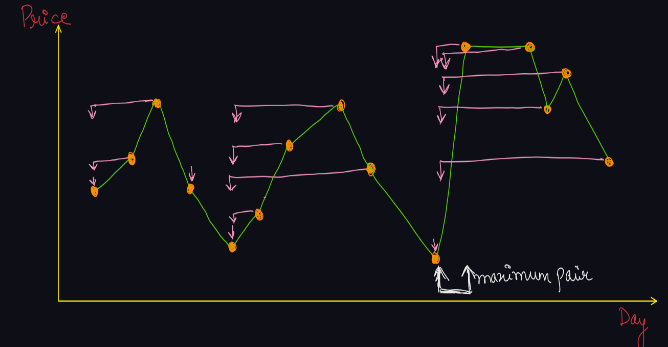 Price
maximum pair
Day